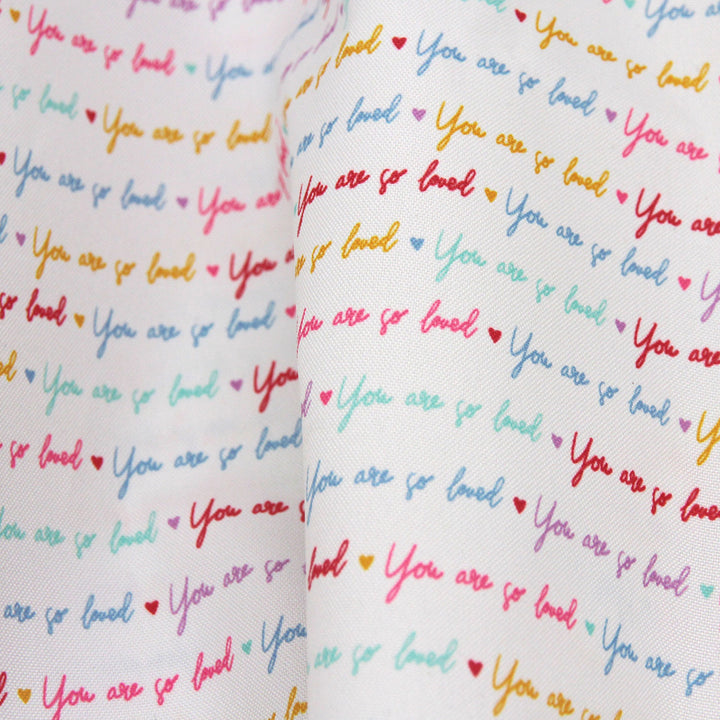 You are so loved You are so loved
You are so loved You are so loved
so loved You are so loved
You are so loved You are
You are so loved You
so loved You are so loved
loved You are so loved You
so loved You are so loved
You are so loved You are so
are so loved You are so
so loved You are so loved You
are so loved You are so loved
are so loved You are so loved
You are so loved You are so
You are so loved You are so
so loved You are so loved
You are so loved You are so loved
You are so loved You
You are so loved You are so loved
loved You are so loved You are so
are so loved You are so